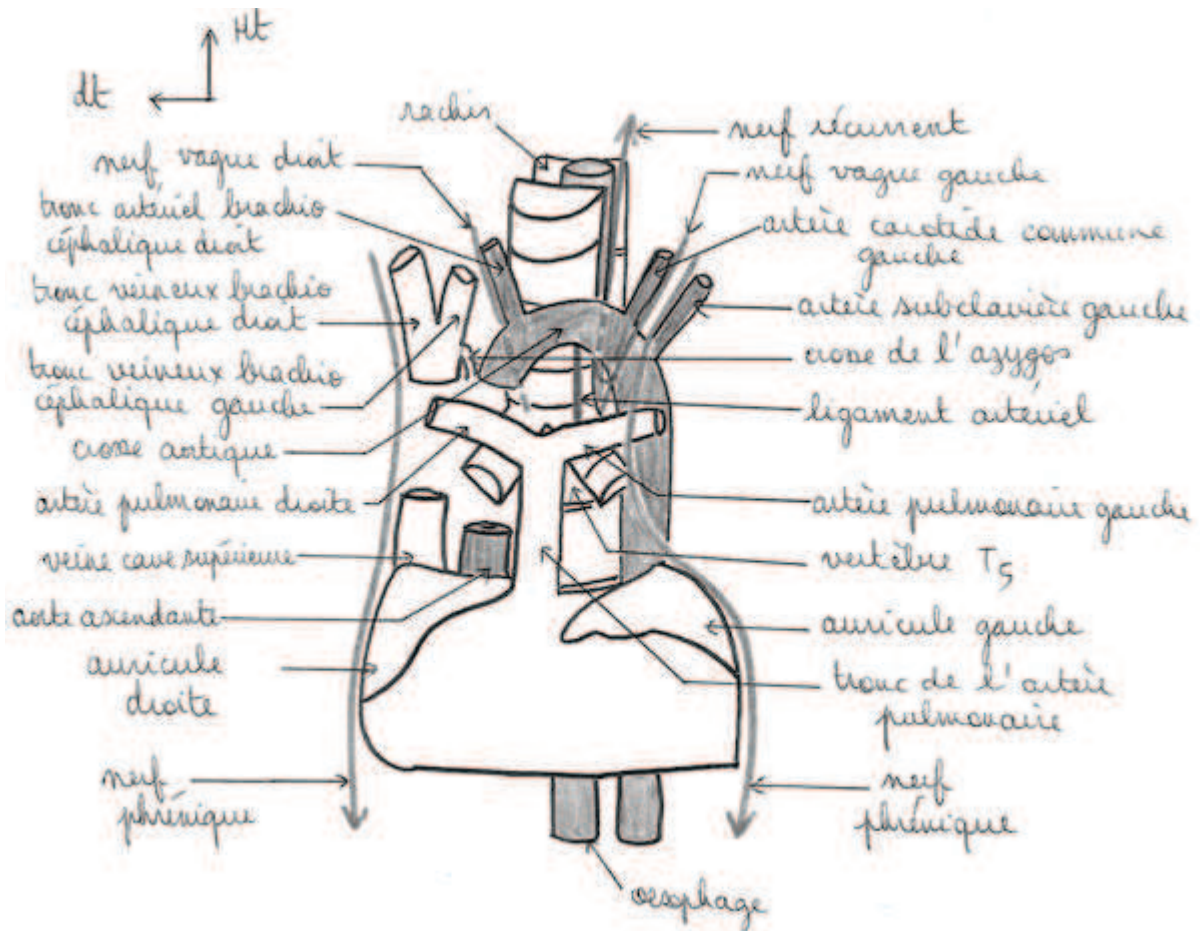 Ht
dt
rachis
nerf vague droit
tronc artériel brachio
céphalique droit
tronc veineux brachio
céphalique droit
tronc veineux brachio
céphalique gauche
crosse aortique
artère pulmonaire droite
veine cave supérieure
aorte ascendante
auricule
droite
nerf
phrénique
nerf récurrent
nerf vague gauche
artère carotide commune
gauche
artère subclavière gauche
crosse de l'azygos
ligament artériel
artère pulmonaire gauche
vertèbre T5
auricule gauche
tronc de l'artère
pulmonaire
nerf
phrénique
œsophage